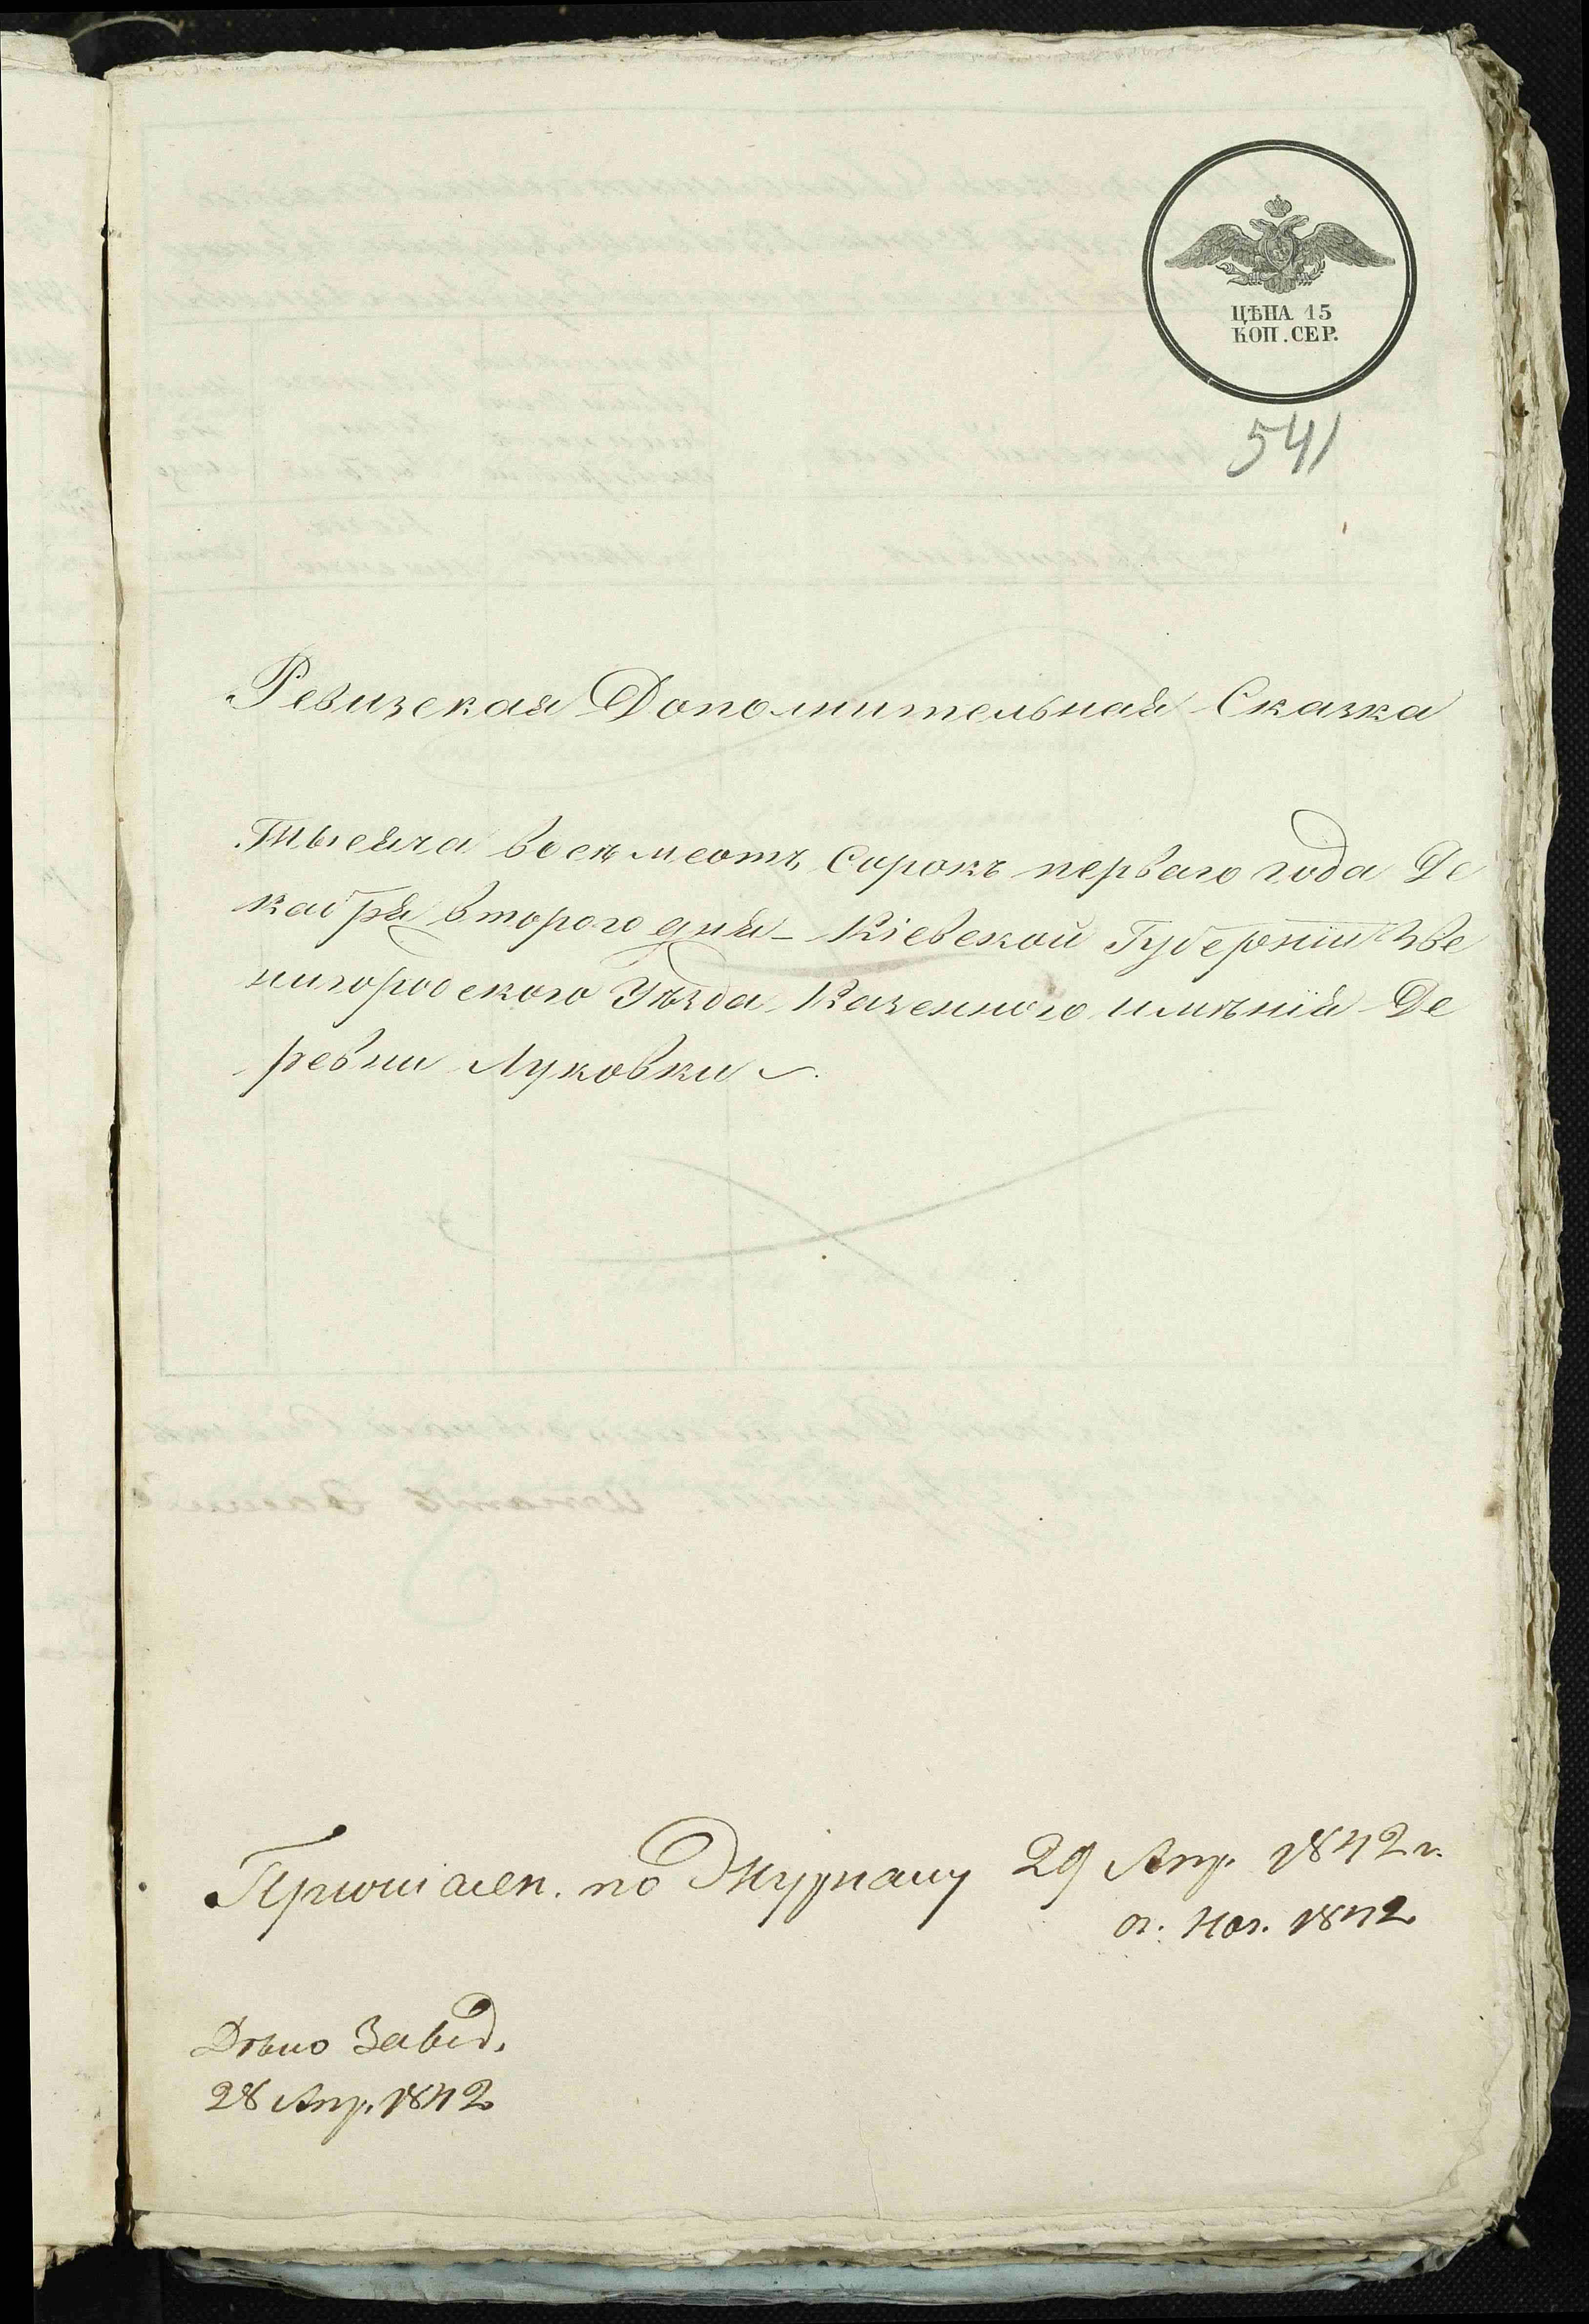 ЦѢНА 15
КОП. СЕР.
541
Ревизская Дополнительная Сказка
Тысяча восемсотъ сорокъ перваго года Де
кабря второго дня - Кіевской Губерніи Зве
нигородского Уѣзда Казенного имѣнія Де
ревни Луковки
по Журналу 29 Апр. 1842 г.
1842
28 Апр. 1842